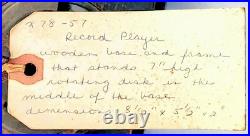 x 78-57
Record Player
wooden base and frame
that stands 7" high
rotating disk in the
middle of the base
dimensions 8 1/2" x 5 1/2" x 2"